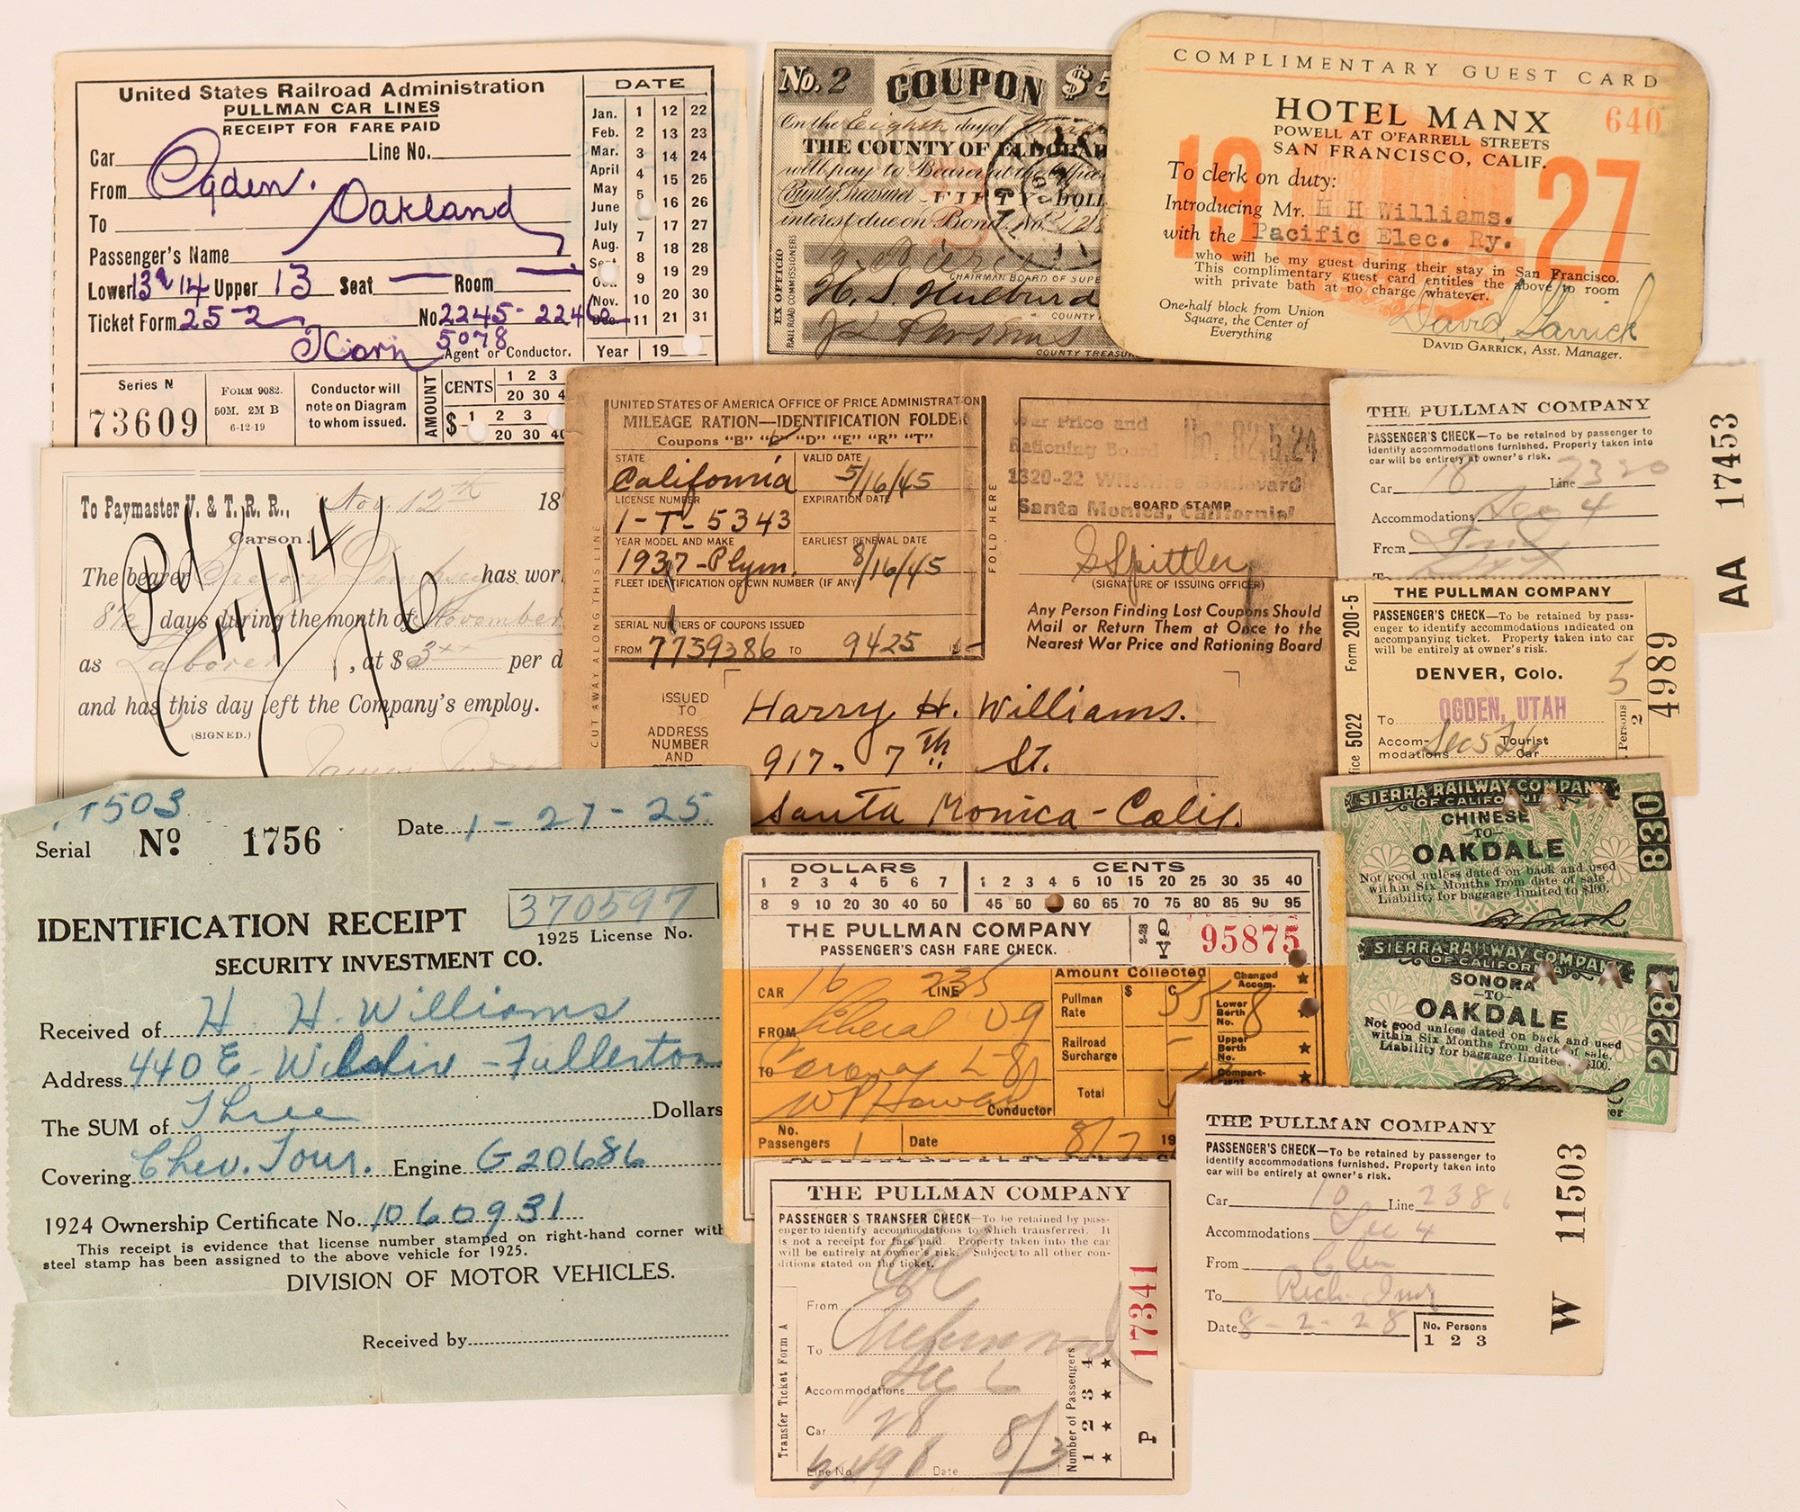 United States Railroad Administration
PULLMAN CAR LINES
RECEIPT FOR FARE PAID
Car Line No.
From Ogden.
To Oakland
Passenger's Name
Lower 13 & 14 Upper 13 Seat — Room —
Ticket Form 252 No 2245-2246
5078
Agent or Conductor.
DATE
Jan. 1 12 22
Feb. 2 13 23
Mar. 3 14 24
April 4 15 25
May 5 16 26
June
July 7 17 27
Aug. 8 18 28
9 19 29
Nov. 10 20 30
Dec 11 21 31
Year 19
Series N
73609
FORM 9082.
50M. 2M B
6-12-19
Conductor will
note on Diagram
to whom issued.
AMOUNT
CENTS 1 2 3
20 30 4
$ 1 2 3
20 30 40
No. 2 COUPON $5
On the Eighth day of
THE COUNTY OF ELDORA
will pay to Bearer at the Office
County Treasurer FIFTY DOLL
interest due on Bond No.
CHAIRMAN BOARD OF SUPE
H. S. Hulburd
COUNTY
COUNTY TREASU
EX OFFICIO
RAILROAD COMMISSIONERS
COMPLIMENTARY GUEST CARD
HOTEL MANX
640
POWELL AT O'FARRELL STREETS
SAN FRANCISCO, CALIF.
1927
To clerk on duty:
Introducing Mr. H H Williams.
with the Pacific Elec. Ry.
who will be my guest during their stay in San Francisco.
This complimentary guest card entitles the above to room
with private bath at no charge whatever.
One-half block from Union
Square, the Center of
Everything
David Garrick
DAVID GARRICK, Asst. Manager.
To Paymaster V. & T. R. R., Nov. 12th 18
Carson.
The bearer has wor
8½ days during the month of November
as Laborer, at $3 per d
and has this day left the Company's employ.
(SIGNED.)
Pd 11/14/76
UNITED STATES OF AMERICA OFFICE OF PRICE ADMINISTRATION
MILEAGE RATION—IDENTIFICATION FOLDER
Coupons "B" "C" "D" "E" "R" "T"
STATE
California
VALID DATE
5/16/45
LICENSE NUMBER
1-T-5343
EXPIRATION DATE
YEAR MODEL AND MAKE
1937-Plym.
EARLIEST RENEWAL DATE
8/16/45
FLEET IDENTIFICATION OR OWN NUMBER (IF ANY)
SERIAL NUMBERS OF COUPONS ISSUED
FROM 7759386 TO 9425
CUT AWAY ALONG THIS LINE
FOLD HERE
War Price and
Rationing Board No. 02.5.24
1320-22 Wilshire Boulevard
Santa Monica, California
BOARD STAMP
G Spittler
(SIGNATURE OF ISSUING OFFICER)
Any Person Finding Lost Coupons Should
Mail or Return Them at Once to the
Nearest War Price and Rationing Board
ISSUED
TO
Harry H. Williams.
ADDRESS
NUMBER
AND
917- 7th St.
Santa Monica-Calif.
THE PULLMAN COMPANY
PASSENGER'S CHECK—To be retained by passenger to
identify accommodations furnished. Property taken into
car will be entirely at owner's risk.
Car 18 Line 2320
Accommodations Sec 4
From
To
AA 17453
THE PULLMAN COMPANY
PASSENGER'S CHECK—To be retained by passenger
to identify accommodations indicated on
accompanying ticket. Property taken into car
will be entirely at owner's risk.
DENVER, Colo.
To OGDEN, UTAH
Accommodations Sec 5 Tourist
Car
5
Persons 2
4989
Form 200-5
ice 5022
SIERRA RAILWAY COMPANY
OF CALIFORNIA
CHINESE
—TO—
OAKDALE
Not good unless dated on back and used
within Six Months from date of sale.
Liability for baggage limited to $100.
830
SIERRA RAILWAY COMPANY
OF CALIFORNIA
SONORA
—TO—
OAKDALE
Not good unless dated on back and used
within Six Months from date of sale.
Liability for baggage limited $100.
2281
1503
Serial No 1756 Date 1-27-25
370597
1925 License No.
IDENTIFICATION RECEIPT
SECURITY INVESTMENT CO.
Received of H. H. Williams
Address 440 E. Wilshire - Fullerton
The SUM of Three Dollars
Covering Chev. Tour. Engine G20686
1924 Ownership Certificate No. 1060931
This receipt is evidence that license number stamped on right-hand corner with
steel stamp has been assigned to the above vehicle for 1925.
DIVISION OF MOTOR VEHICLES.
Received by
DOLLARS CENTS
1 2 3 4 5 6 7 1 2 3 4 5 10 15 20 25 30 35 40
8 9 10 20 30 40 50 45 50 60 65 70 75 80 85 90 95
THE PULLMAN COMPANY
PASSENGER'S CASH FARE CHECK.
2-28
QY
95875
CAR 16 LINE 235
FROM Liberal
TO
Conductor
No.
Passengers 1 Date 8/7 19
Amount Collected
$ C
Pullman
Rate
Railroad
Surcharge
Total
Changed
Accom.
Lower
Berth
No. 8
Upper
Berth
No.
THE PULLMAN COMPANY
PASSENGER'S TRANSFER CHECK—To be retained by passenger
to identify accommodations to which transferred. It
is not a receipt for fare paid. Property taken into the car
will be entirely at owner's risk. Subject to all other conditions
stated on the ticket.
From
To Richmond
Accommodations Sec 6
Car 28
Line No. Date 8/3
Transfer Ticket Form A
Number of Passengers
1 2 3 4
P 17341
THE PULLMAN COMPANY
PASSENGER'S CHECK—To be retained by passenger to
identify accommodations furnished. Property taken into
car will be entirely at owner's risk.
Car 10 Line 2386
Accommodations Sec 4
From
To Rich Ind
Date 8-2-28
No. Persons
1 2 3
W 11503